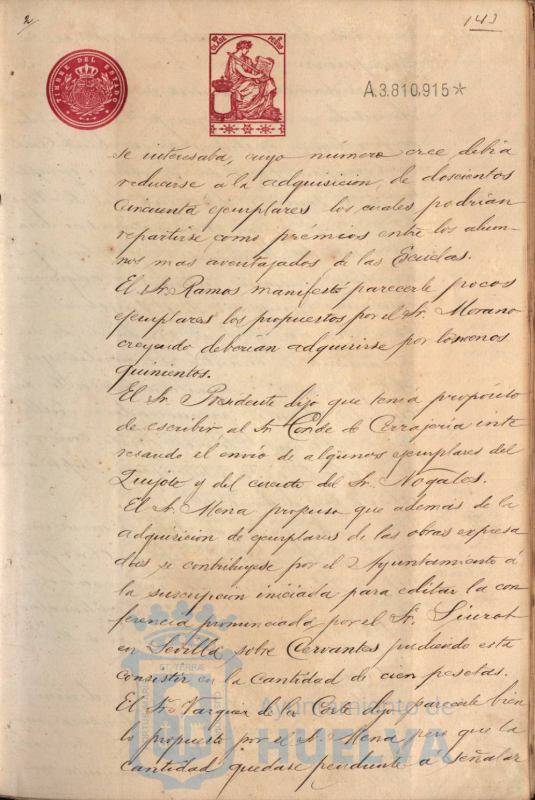 2/
143
TIMBRE DEL ESTADO
A.3.810.915*
se interesaba, cuyo número cree debia
reducirse á la adquisicion, de doscientos
cincuenta ejemplares los cuales podrian
repartirse como prémios entre los alum-
nos mas aventajados de las Escuelas.
El Sr. Ramos manifestó parecerle pocos
ejemplares los propuestos por el Sr. Morano
creyendo deberian adquirirse por lo menos
quinientos.
El Sr. Presidente dijo que tenia propósito
de escribir al Sr. Conde de Cerrajeria inte
resando el envío de algunos ejemplares del
Quijote y del cuento del Sr. Nogales.
El Sr. Mena propuso que además de la
adquisicion de ejemplares de las obras expresa
das se contribuyese por el Ayuntamiento á
la suscripcion iniciada para editar la con
ferencia pronunciada por el Sr. Siurot
en Sevilla sobre Cervantes pudiendo esta
consistir en la cantidad de cien pesetas.
El Sr. Vazquez de la Corte dijo parecerle bien
lo propuesto por el Sr. Mena pero que la
cantidad quedase pendiente a señalar
Ayuntamiento de
HUELVA